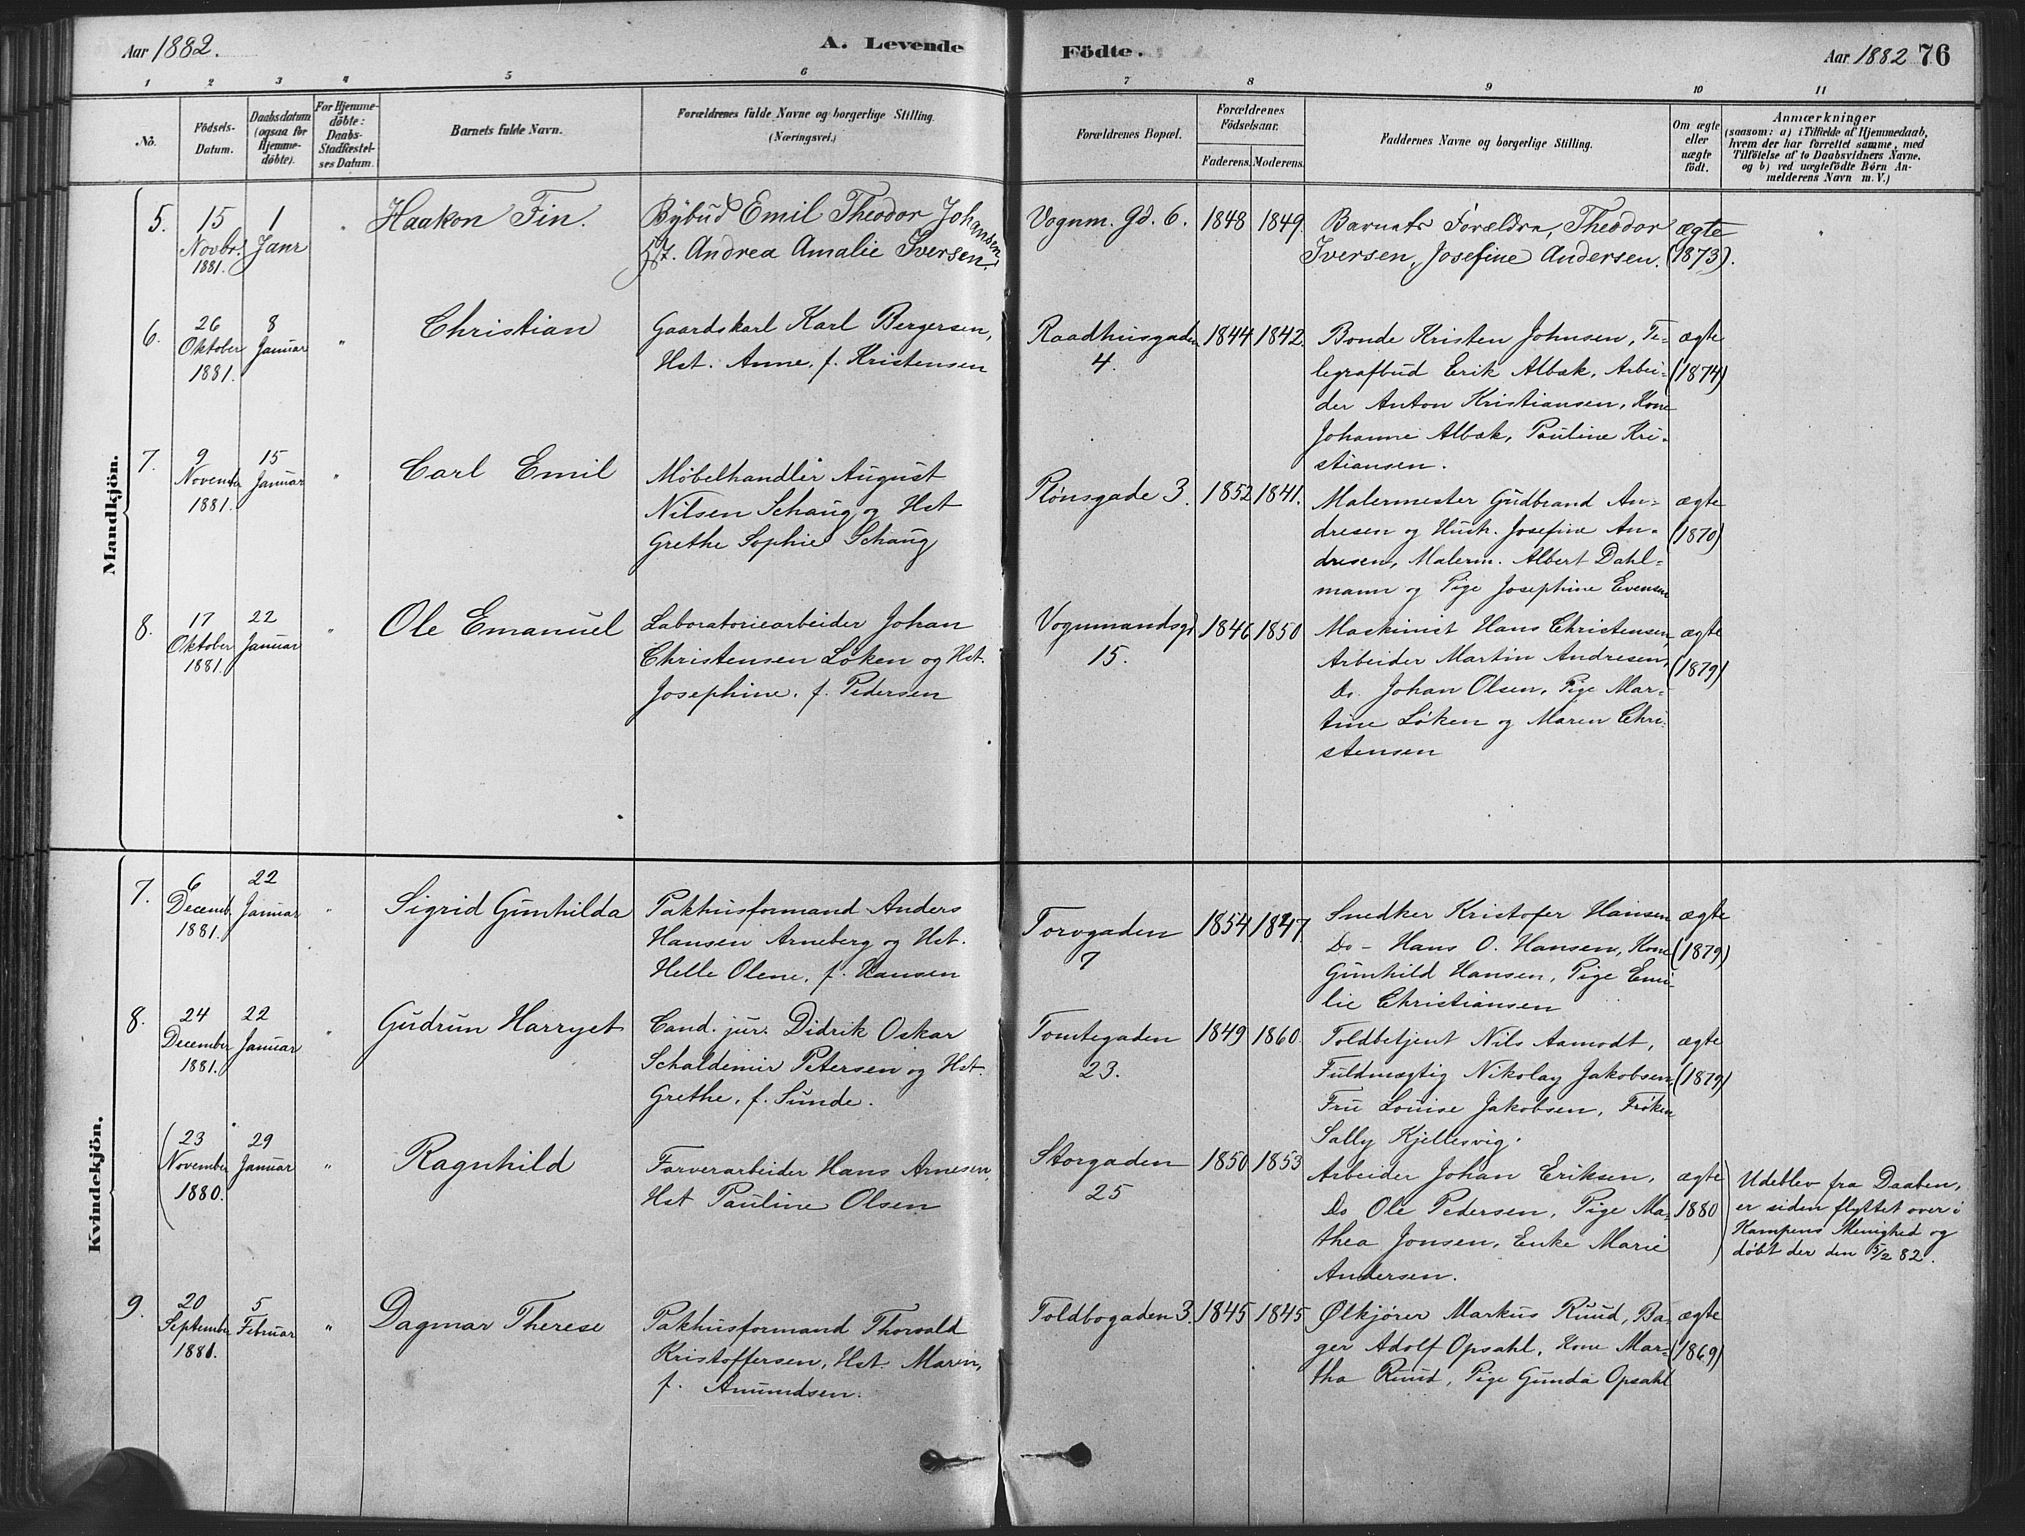 Aar 1882.
A. Levende
Födte.
Aar 1882 76
1 2 3 4 5 6 7 8 9 10 11
No.
Födsels-
Datum.
Daabsdatum
(ogsaa for
Hjemme-
döbte).
For Hjemme-
döbte:
Daabs-
Stadfæstel-
ses Datum.
Barnets fulde Navn.
Forældrenes fulde Navne og borgerlige Stilling.
(Næringsvei.)
Forældrenes Bopæl.
Forældrenes
Födselsaar.
Faderens. Moderens.
Faddernes Navne og borgerlige Stilling.
Om ægte
eller
uægte
födt.
Anmærkninger
(saasom: a) i Tilfælde af Hjemmedaab,
hvem der har forrettet samme, med
Tilföielse af to Daabsvidners Navne,
og b) ved uægtefödte Börn An-
melderens Navn m. V.)
Mandkjön.
5. 15
Novbr.
1881.
1
Janr
"
Haakon Fin.
Bybud Emil Theodor Johansen
Hst. Andrea Amalie Iversen.
Vognm. Gd. 6.
1848 1849.
Barnets Forældre, Theodor
Iversen, Josefine Andersen.
ægte
(1873).
"
6. 26
Oktober
1881.
8
Januar
"
Christian
Gaardskarl Karl Bergersen,
Hst. Anne, f. Kristensen
Raadhusgaden
4.
1844 1842.
Bonde Kristen Johnsen, Te-
legrafbud Erik Albæk, Arbei-
der Anton Kristiansen, Kone
Johanne Albæk, Pauline Kri-
stiansen.
ægte
(1874)
7. 9
November
1881.
15
Januar
"
Carl Emil
Møbelhandler August
Nilsen Schaug og Hst
Grethe Sophie Schaug
Plønsgade 3.
1852 1841.
Malermester Gudbrand An-
dresen og Hustr. Josefine An-
dresen, Malerm. Albert Dahl-
mann og Pige Josephine Evensen
ægte
(1870)
8. 17
Oktober
1881.
22
Januar
"
Ole Emanuel
Laboratoriearbeider Johan
Christensen Løken og Hst.
Josephine, f. Pedersen
Vognmandsgd
15.
1846 1850
Maskinist Hans Christensen,
Arbeider Martin Andresen,
Do. Johan Olsen, Pige Mar-
tine Løken og Maren Chri-
stensen
ægte
(1879)
Kvindekjön.
7. 6
Decemb.
1881.
22
Januar
"
Sigrid Gunhilda
Pakhusformand Anders
Hansen Arneberg og Hst.
Helle Olene, f. Hansen
Torvgaden
7
1854 1847
Snedker Kristofer Hansen
Do - Hans O. Hansen, Kone
Gunhild Hansen, Pige Emi-
lie Christiansen
ægte
(1879)
8. 24
December
1881.
22
Januar
"
Gudrun Harryet
Cand. jur. Didrik Oskar
Schaldemir Petersen og Hst.
Grethe, f. Sunde.
Tomtegaden
23.
1849 1860.
Toldbetjent Nils Aamodt,
Fuldmægtig Nikolay Jakobsen,
Fru Louise Jakobsen, Frøken
Sally Kjellesvig.
ægte
(1879)
(23
November
1880.
29
Januar
"
Ragnhild
Farverarbeider Hans Arnesen,
Hst Pauline Olsen
Storgaden
25
1850 1853
Arbeider Johan Eriksen,
Do Ole Pedersen, Pige Ma-
thea Jonsen, Enke Marie
Andersen.
ægte
1880
Udeblev fra Daaben,
er siden flyttet over i
Kampens Menighed og
døbt der den 5/2 82.
9. 20
September
1881.
5
Februar
"
Dagmar Therese
Pakhusformand Thorvald
Kristoffersen, Hst. Maren,
f. Amundsen.
Toldbogaden 3.
1845 1845
Ølkjører Markus Ruud, Ba-
ger Adolf Opsahl, Kone Mar-
tha Ruud, Pige Gunda Opsahl
ægte
(1869)